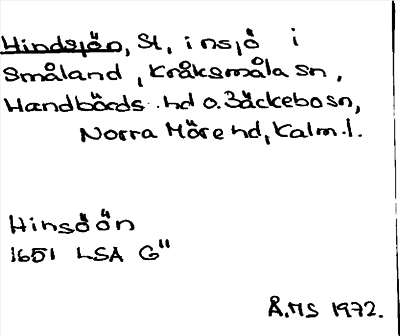 Hindsjön, St, insjö i
Småland, Kråksmåla sn,
Handbörds hd o. Bäckebo sn,
Norra Möre hd, Kalm. l.
Hinsöön
1651 LSA G"
Å.MS 1972.